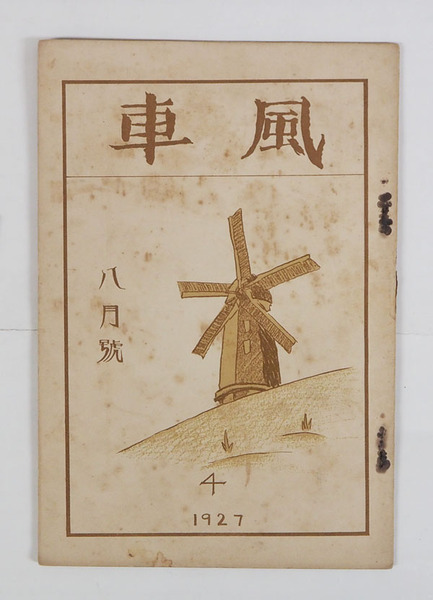 風車
八月號
4
1927